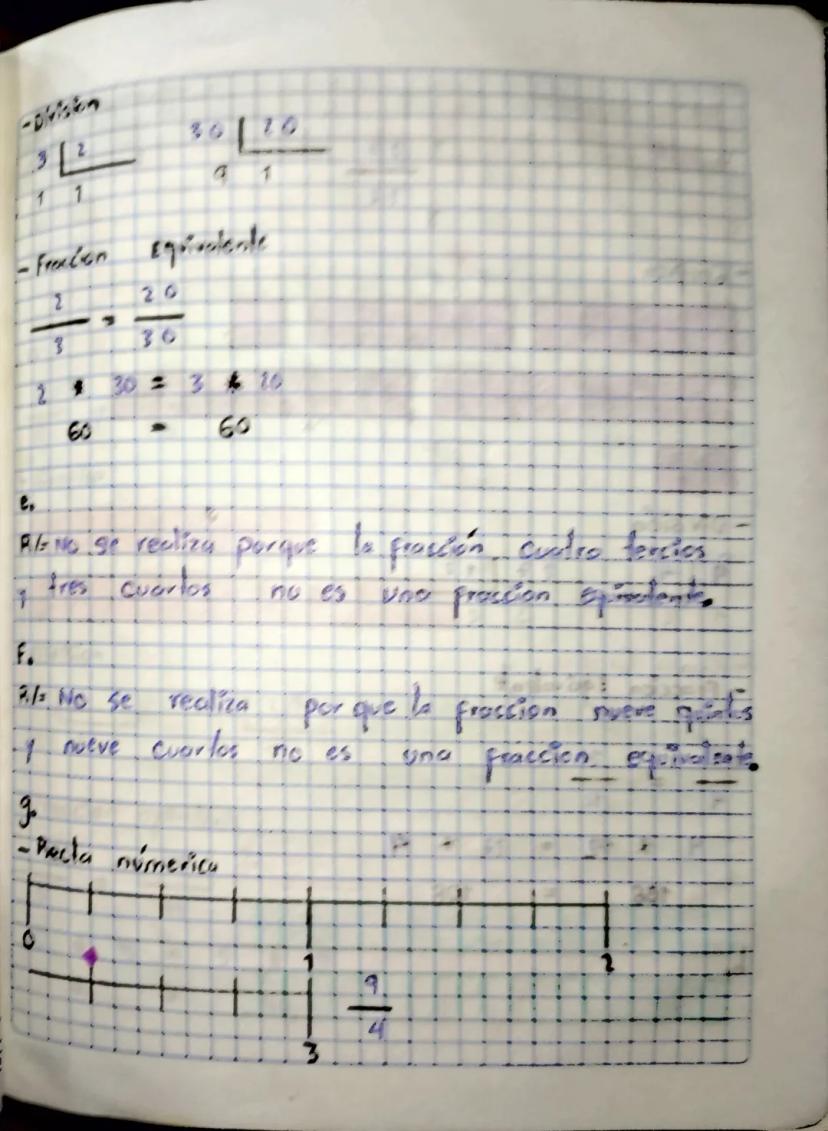 - División
3 2 30 20
1 1 9 1
- Fracción Equivalente
2/3 = 20/30
2 * 30 = 3 * 20
60 = 60
e.
R/= No se realiza porque la fracción cuatro tercios
y tres cuartos no es una fracción
F.
R/= No se realiza por que la fraccion nueve quintos
y nueve cuartos no es una fraccion equivalente.
g.
- Recta númerica
0 1 2
9/4
3